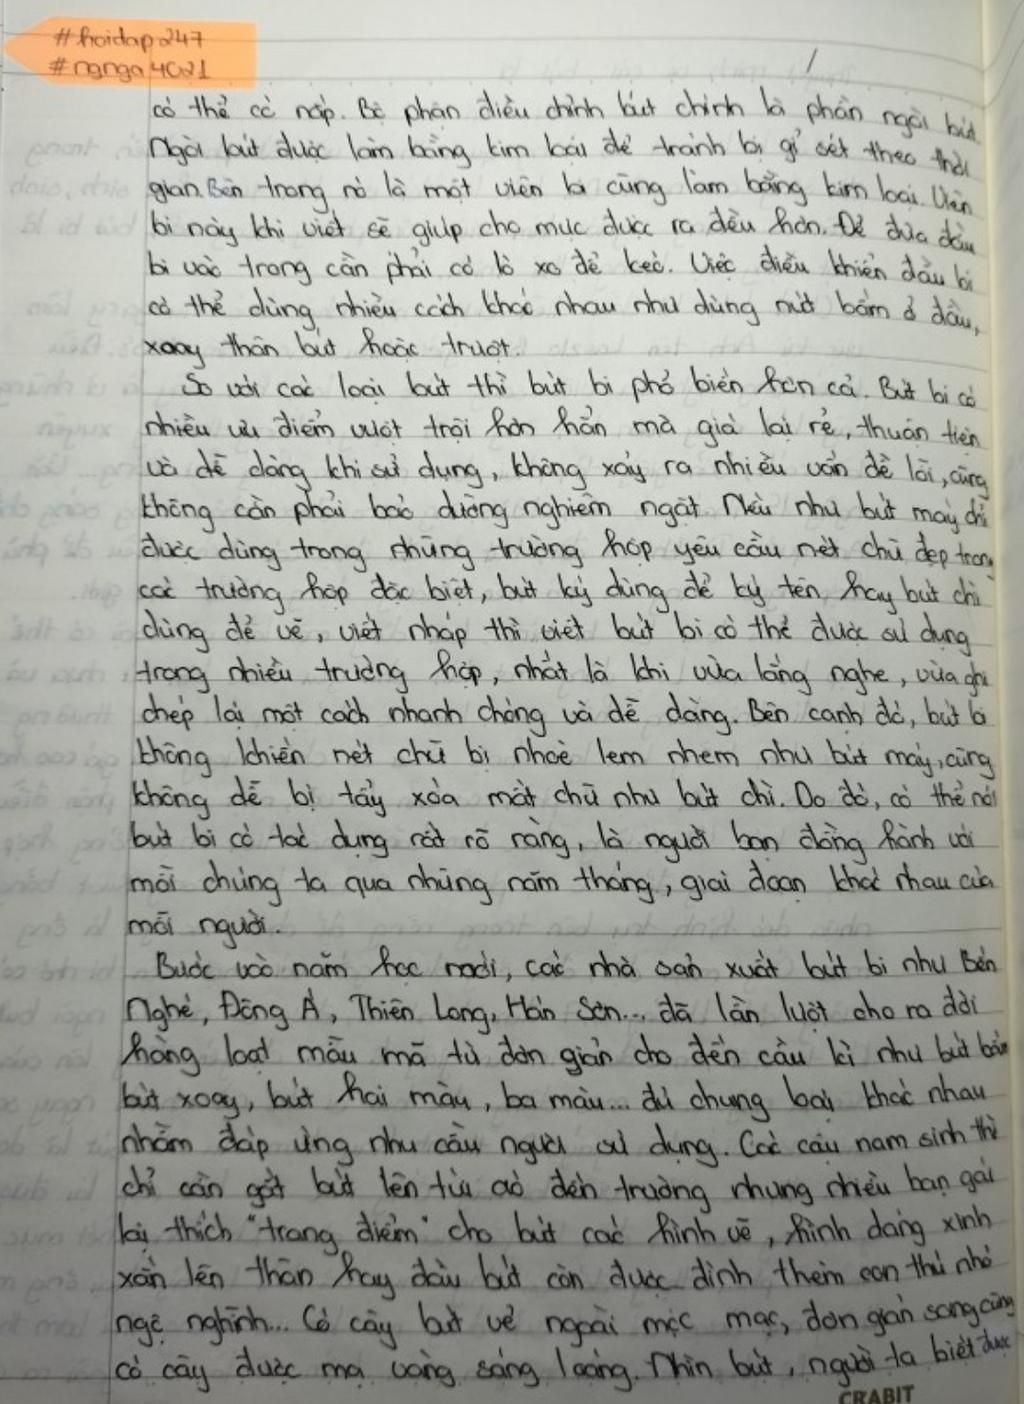 #hoidap247
#ngnga4021
có thể có nắp. Bộ phận điều chỉnh bút chính là phần ngòi bút.
Ngòi bút được làm bằng kim loại để tránh bị gỉ sét theo thời
gian. Bên trong nó là một viên bi cũng làm bằng kim loại. Viên
bi này khi viết sẽ giúp cho mực được ra đều hơn. Để đưa đầu
bi vào trong cần phải có lò xo để kéo. Việc điều khiển đầu bi
có thể dùng nhiều cách khác nhau như dùng nút bấm ở đầu,
xoay thân bút hoặc trượt.
So với các loại bút thì bút bi phổ biến hơn cả. Bút bi có
nhiều ưu điểm vượt trội hơn hẳn mà giá lại rẻ, thuận tiện
và dễ dàng khi sử dụng, không xảy ra nhiều vấn đề lỗi, cũng
không cần phải bảo dưỡng nghiêm ngặt. Nếu như bút máy chỉ
được dùng trong những trường hợp yêu cầu nét chữ đẹp trong
các trường hợp đặc biệt, bút ký dùng để ký tên hay bút chì
dùng để vẽ, viết nháp thì viết bút bi có thể được sử dụng
trong nhiều trường hợp, nhất là khi vừa lắng nghe, vừa ghi
chép lại một cách nhanh chóng và dễ dàng. Bên cạnh đó, bút bi
không khiến nét chữ bị nhoè lem nhem như bút máy, cũng
không dễ bị tẩy xóa mất chữ như bút chì. Do đó, có thể nói
bút bi có tác dụng rất rõ ràng, là người bạn đồng hành với
mỗi chúng ta qua những năm tháng, giai đoạn khác nhau của
mỗi người.
Bước vào năm học mới, các nhà sản xuất bút bi như Bến
Nghé, Đông Á, Thiên Long, Hán Sơn... đã lần lượt cho ra đời
hàng loạt mẫu mã từ đơn giản cho đến cầu kì như bút bấm
bút xoay, bút hai màu, ba màu... đủ chủng loại khác nhau
nhằm đáp ứng nhu cầu người sử dụng. Các cậu nam sinh thì
chỉ cần gắt bút lên túi áo đến trường nhưng nhiều bạn gái
lại thích "trang điểm" cho bút các hình vẽ, hình dáng xinh
xắn lên thân hay đầu bút còn được đính thêm con thú nhỏ
ngộ nghĩnh... Có cây bút vẻ ngoài mộc mạc, đơn giản song cũng
có cây được mạ vàng sáng loáng. Nhìn bút, người ta biết được
CRABIT